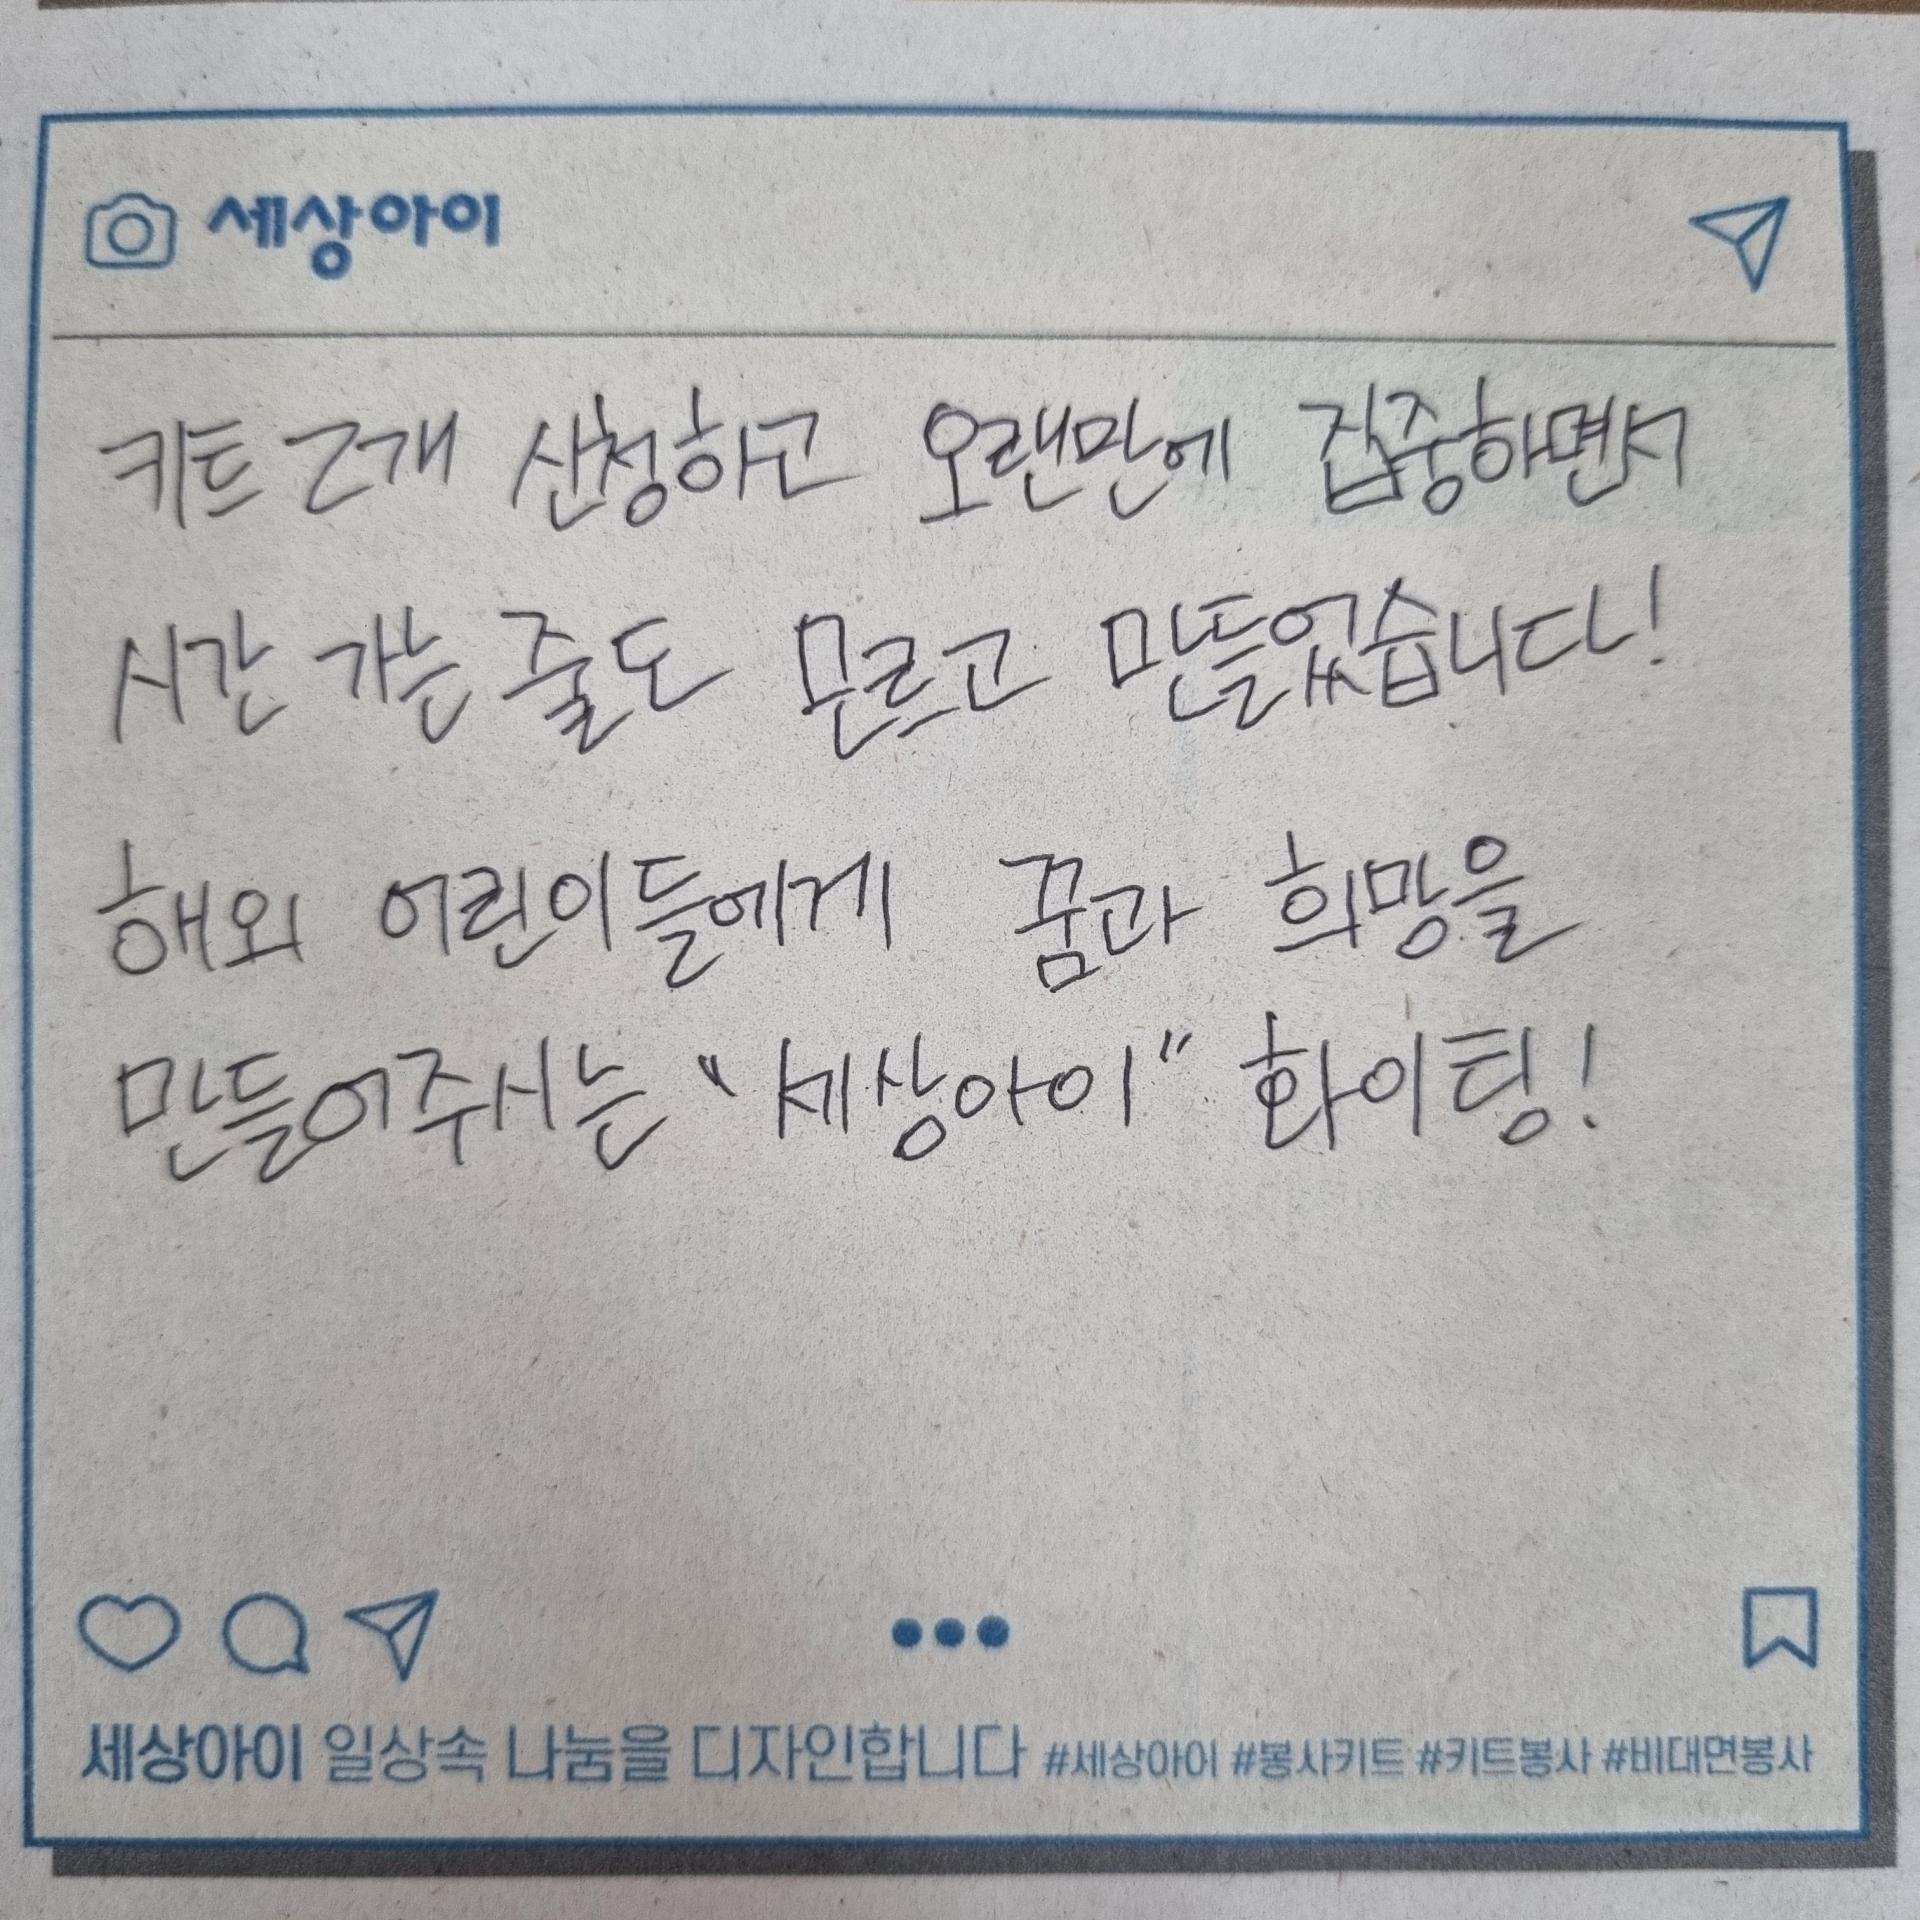 세상아이
키트 2개 신청하고 오랜만에 집중하면서
시간 가는 줄도 모르고 만들었습니다!
해외 어린이들에게 꿈과 희망을
만들어주시는 "세상아이" 화이팅!
세상아이 일상속 나눔을 디자인합니다 #세상아이 #봉사키트 #키트봉사 #비대면봉사